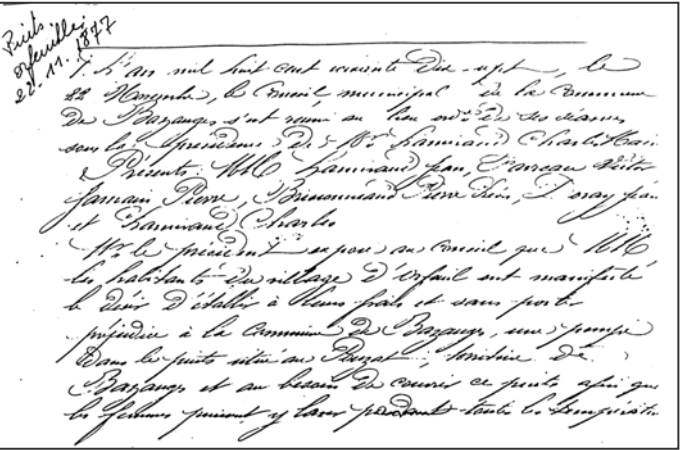 Puits
orfeuille
22.11.1877
L'an mil huit cent soixante Dix-sept, le
22 Novembre, le Conseil municipal de la Commune
De Bazauges s'est réuni au lieu ordre de ses séances
sous la présidence De Mr Chauvraud Charles Maire
Présents MM Jean, Victor
Jamain Pierre, Pierre, Jean
et Charles
Mr le président expose au Conseil que MM
les habitants Du village D'orfeuil ont manifesté
le Désir D'établir à leurs frais et sans porter
préjudice à la Commune De Bazauges, une pompe
Dans le puits situé au, territoire De
Bazauges et au besoin De couvrir ce puits afin que
les femmes puissent y laver pendant toutes les